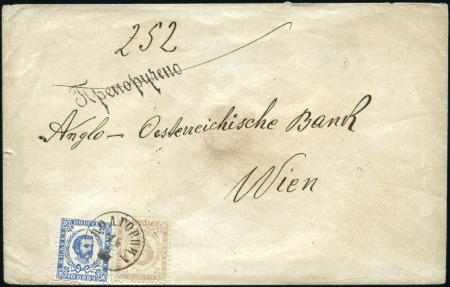 252
Препоручено
Anglo – Oesterreichische Bank
Wien
ПОДГОРИЦА